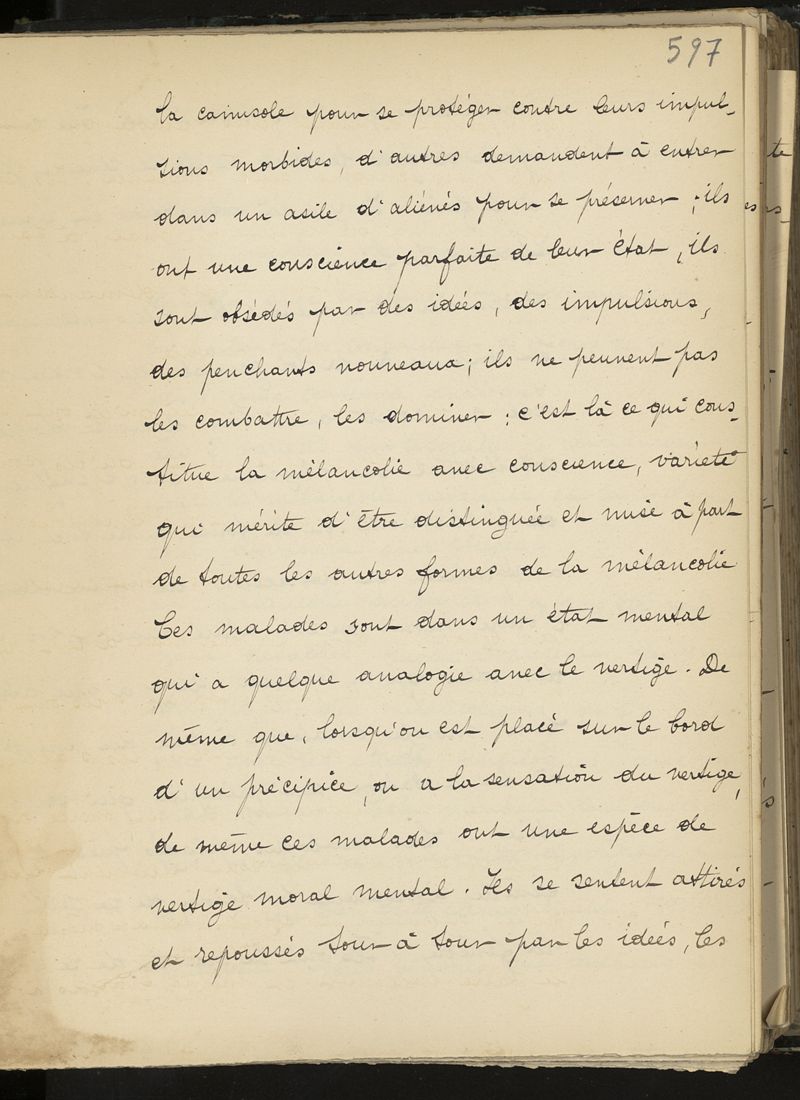 597
la camisole pour se protéger contre leurs impul-
sions morbides, d'autres demandent à entrer
dans un asile d'aliénés pour se préserver ; ils
ont une conscience parfaite de leur état, ils
sont obsédés par des idées, des impulsions,
des penchants nouveaux ; ils ne peuvent pas
les combattre, les dominer : c'est là ce qui cons-
titue la mélancolie avec conscience, variété
qui mérite d'être distinguée et mise à part
de toutes les autres formes de la mélancolie
Ces malades sont dans un état mental
qui a quelque analogie avec le vertige. De
même que, lorsqu'on est placé sur le bord
d'un précipice, on a la sensation du vertige,
de même ces malades ont une espèce de
vertige moral mental. Ils se sentent attirés
et repoussés tour à tour par les idées, les